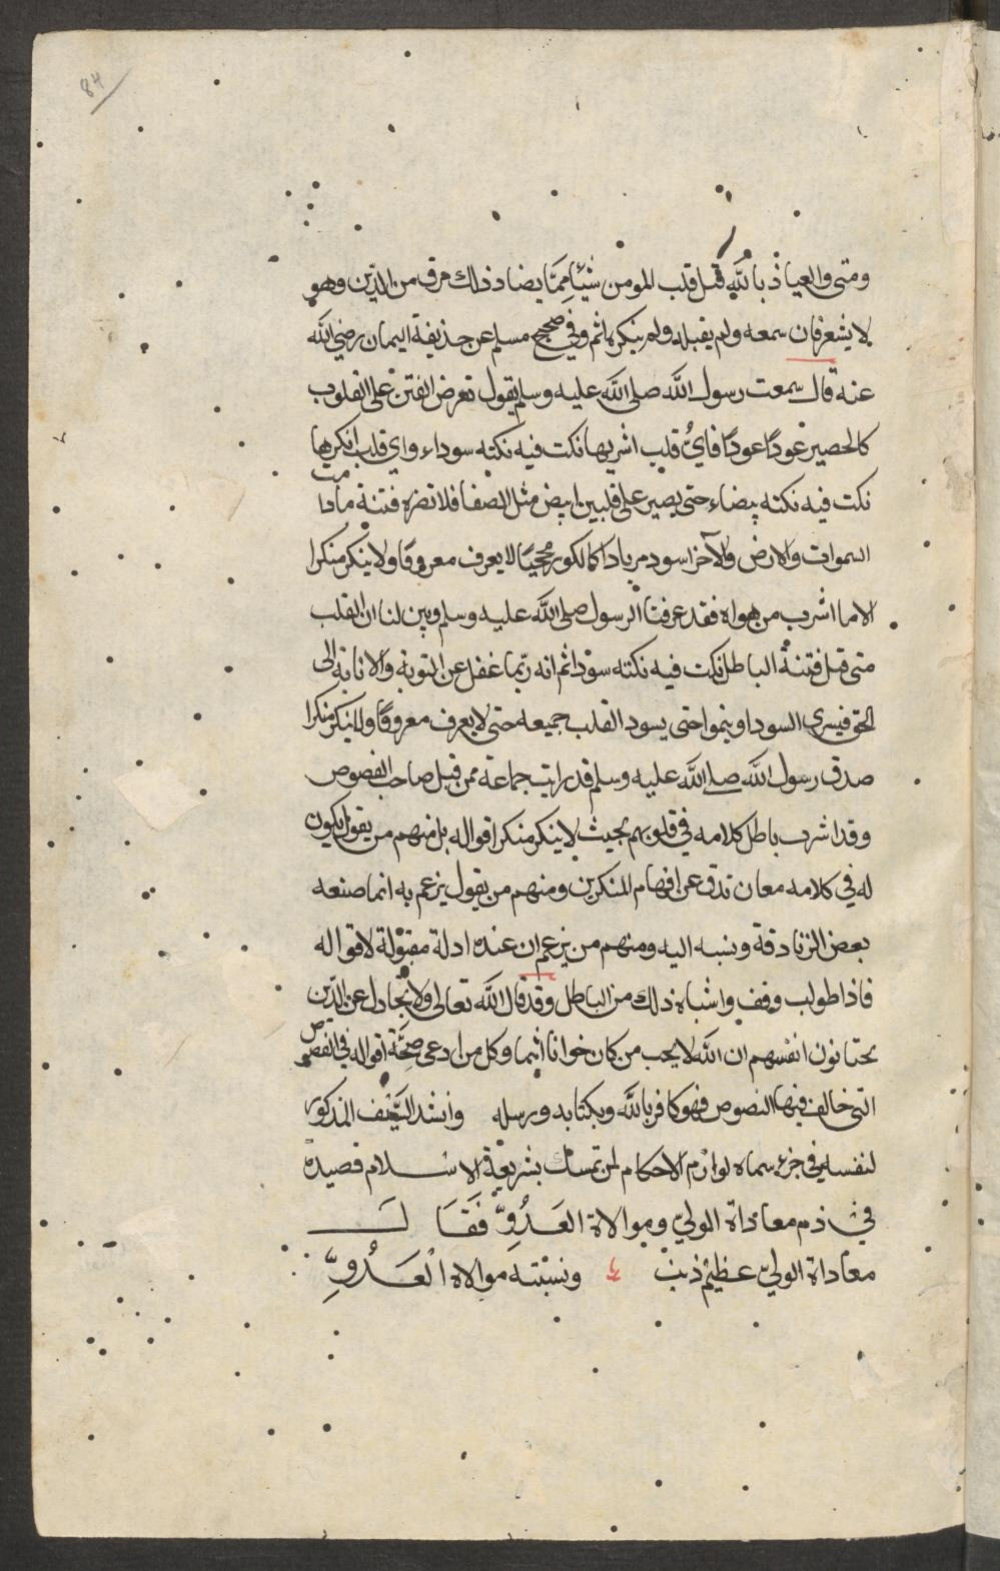 84
ومتى والعياذ بالله قبل قلب المومن شيئا مما يضاد ذلك مرق من الدين وهو
لا يشعر فان سمعه ولم يقبله ولم ينكر باثم وفي صحيح مسلم عن حذيفة اليمان رضي الله
عنه قال سمعت رسول الله صلى الله عليه وسلم يقول تعرض الفتن على القلوب
كالحصير عودًا عودًا فايُّ قلب اشربها نكت فيه نكته سوداء واي قلب انكرها
نكت فيه نكته بيضاء حتى يصير على قلبين ابيض مثل الصفا فلا تضره فتنة مادامت
السموات والارض والآخر اسود مربادا كالكوز مجخيًا لا يعرف معروفًا ولا ينكر منكرا
الا ما اشرب من هواه فقد عرفنا الرسول صلى الله عليه وسلم وبين لنا ان القلب
متى قبل فتنة الباطل نكت فيه نكته سودا ثم انه ربما غفل عن التوبة والانابة الى
الحق فيسري السودا وينموا حتى يسود القلب جميعه حتى لا يعرف معروفًا ولا ينكر منكرا
صدق رسول الله صلى الله عليه وسلم قد رايت جماعة ممن قبل صاحب الفصوص
وقد اشرب باطل كلامه في قلوبهم بحيث لا ينكر منكر اقواله بل منهم من يقول يكون
له في كلامه معان تدق عن افهام المنكرين ومنهم من يقول يزعم به انما صنعه
بعض الزنادقة ونسبه اليه ومنهم من يزعم ان عنده ادلة مقبولة لاقواله
فاذا طولب وقف واشباه ذلك من الباطل وقد قال الله تعالى ولا تجادل عن الذين
يختانون انفسهم ان الله لا يحب من كان خوانا اثيما وكل من ادعى صحة اقواله في الفصوص
التي خالف فيها النصوص فهو كافر بالله وبكتابه ورسله وانشد الشيخ المذكور
لنفسه في جزء سماه لوازم الاحكام لمن تمسك بشريعة الاسلام قصيدة
في ذم معاداة الولي وموالاة العَدُوِّ فَقَال
معاداة الولي عظيم ذنب ونسبته موالاة العَدُوِّ